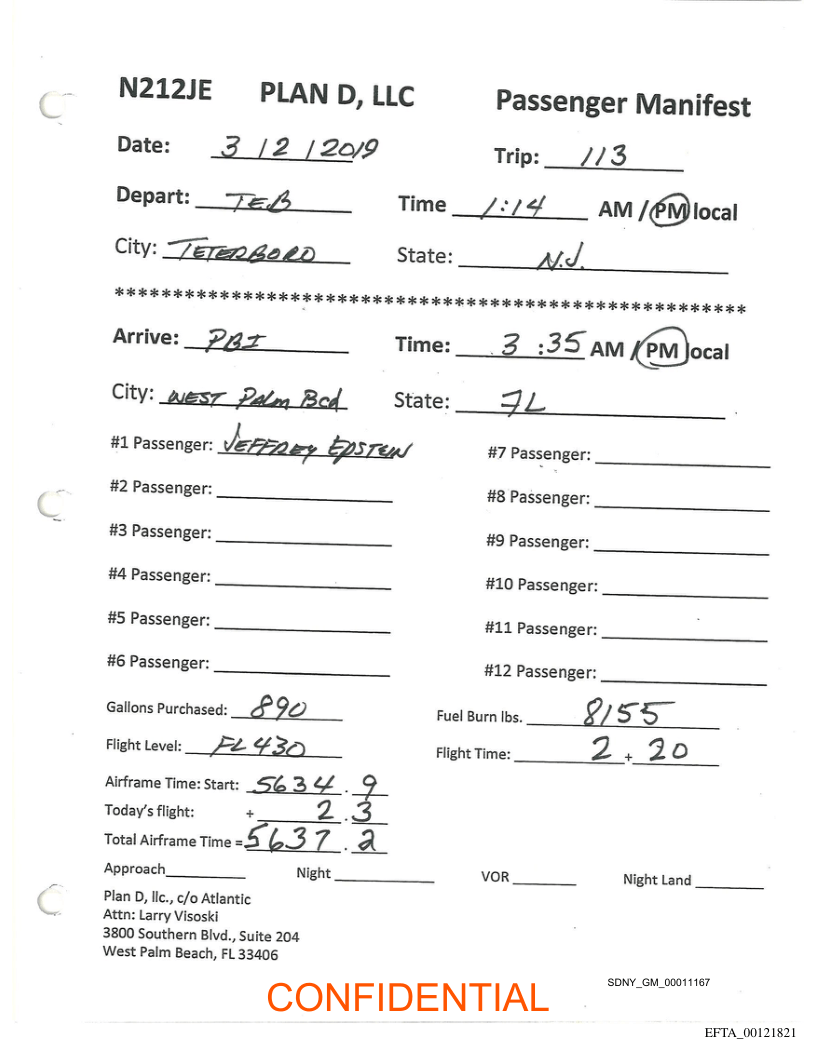 N212JE PLAN D, LLC Passenger Manifest
Date: 3 / 2 / 2019 Trip: 113
Depart: TEB Time 1:14 AM / PM local
City: TETERBORO State: N.J.
******************************************************
Arrive: PBI Time: 3 :35 AM / PM local
City: WEST Palm Bcd State: FL
#1 Passenger: JEFFREY EPSTEIN #7 Passenger:
#2 Passenger: #8 Passenger:
#3 Passenger: #9 Passenger:
#4 Passenger: #10 Passenger:
#5 Passenger: #11 Passenger:
#6 Passenger: #12 Passenger:
Gallons Purchased: 890 Fuel Burn lbs. 8155
Flight Level: FL430 Flight Time: 2 + 20
Airframe Time: Start: 5634 . 9
Today's flight: + 2 . 3
Total Airframe Time = 5637 . 2
Approach Night VOR Night Land
Plan D, llc., c/o Atlantic
Attn: Larry Visoski
3800 Southern Blvd., Suite 204
West Palm Beach, FL 33406
SDNY_GM_00011167
CONFIDENTIAL
EFTA_00121821